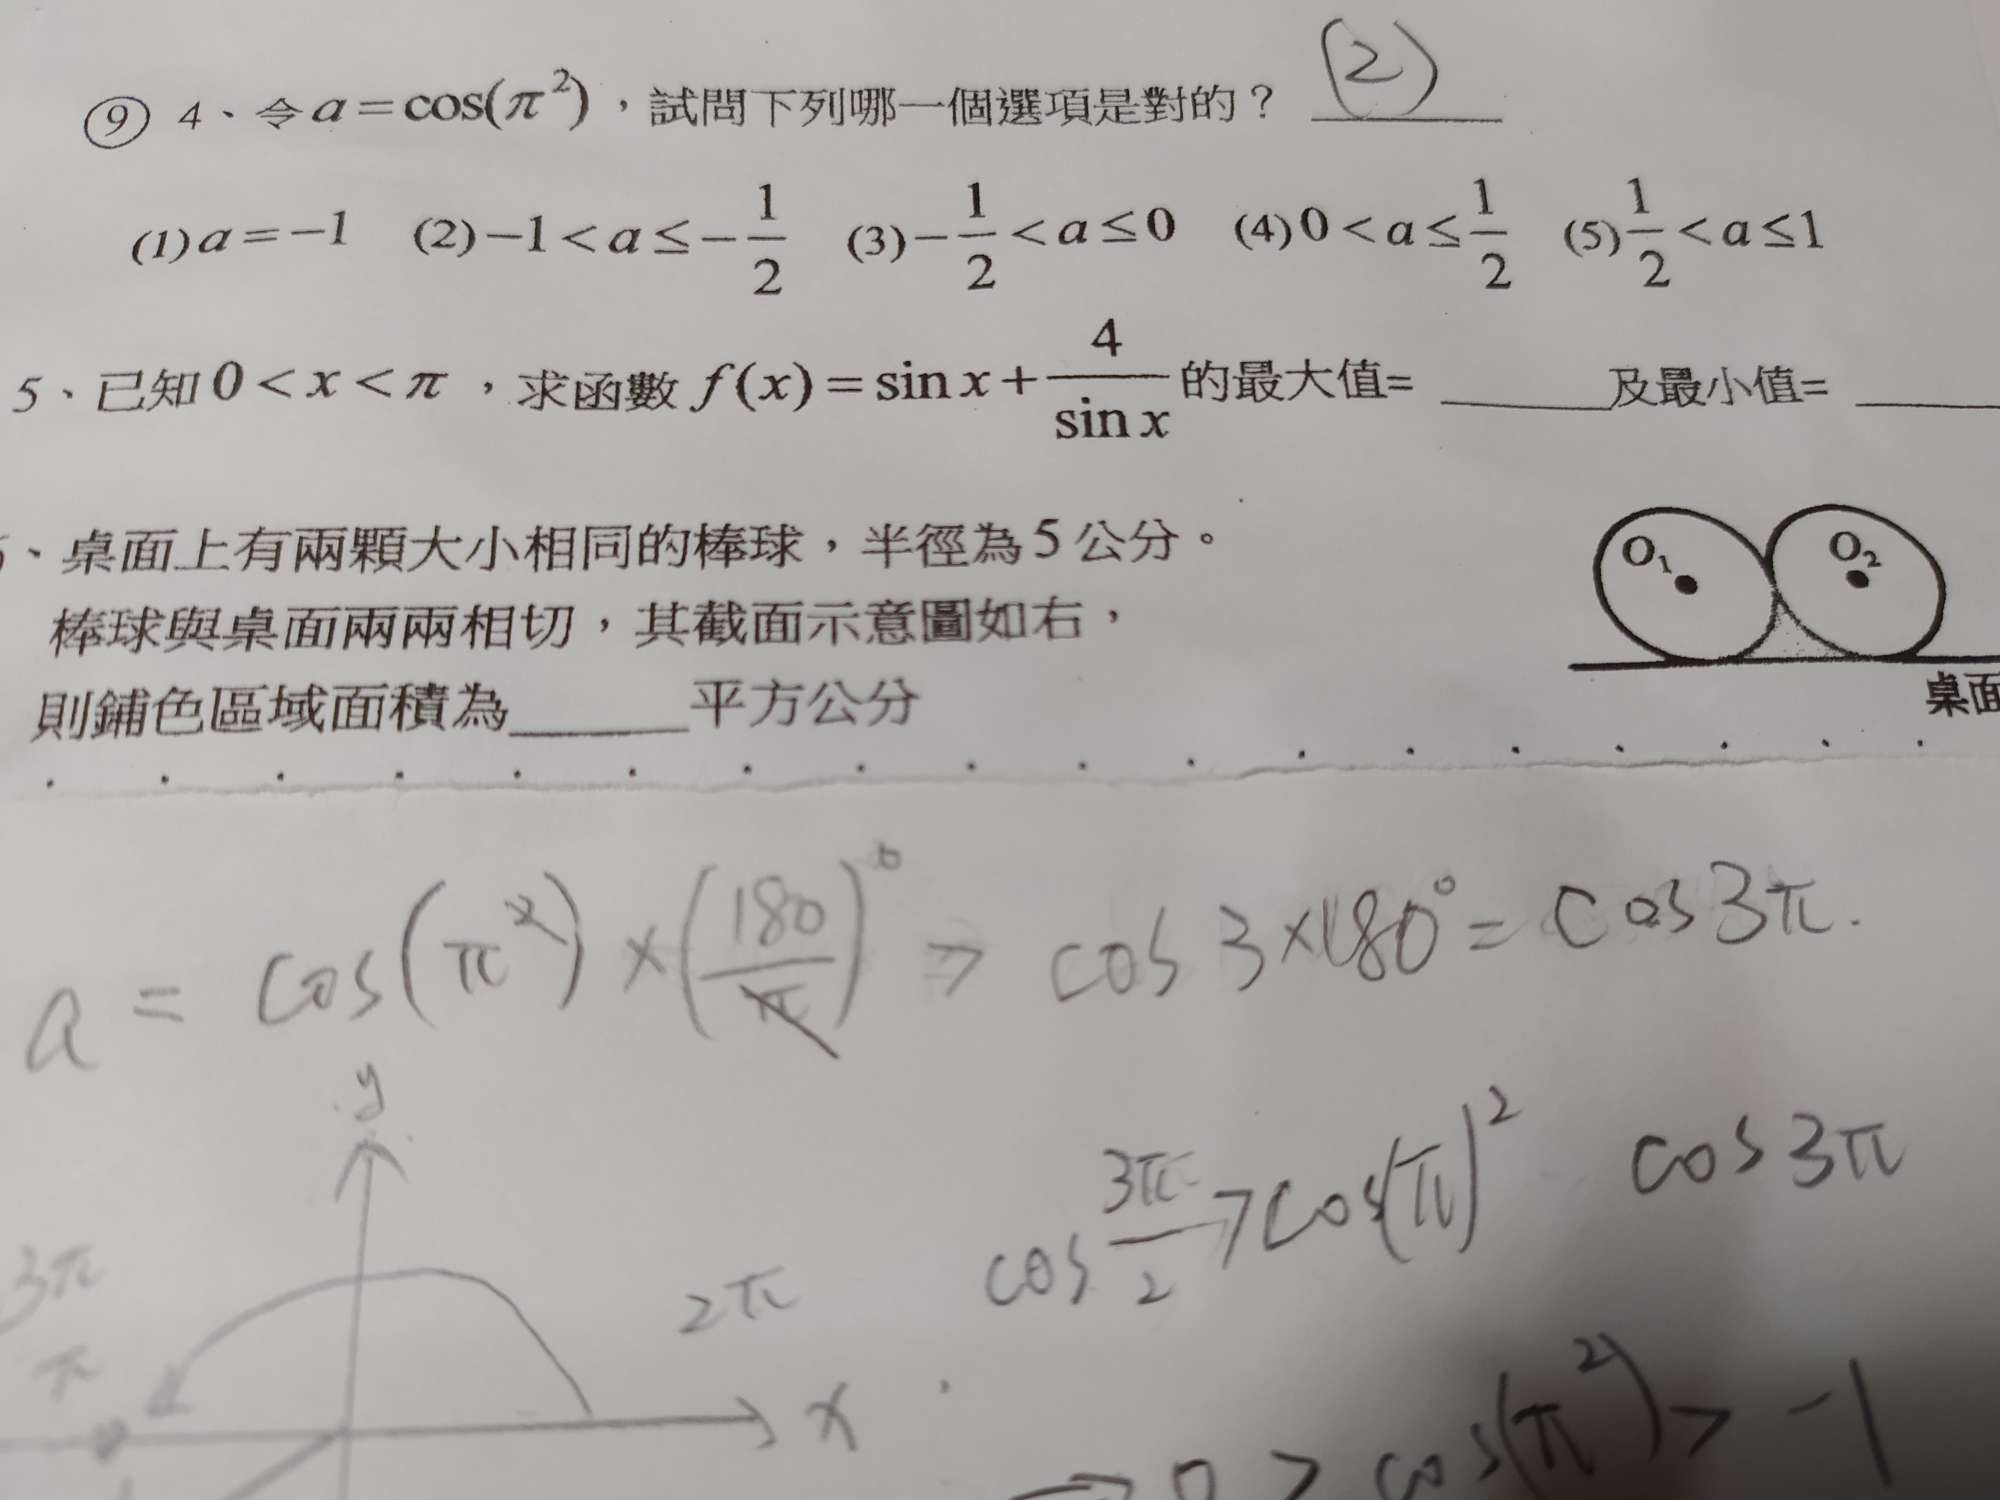 ⑨ 4、令 a = cos(π²)，試問下列哪一個選項是對的？ (2)
(1) a = −1 (2) −1 < a ≤ −1/2 (3) −1/2 < a ≤ 0 (4) 0 < a ≤ 1/2 (5) 1/2 < a ≤ 1
5、已知 0 < x < π，求函數 f(x) = sin x + 4/sin x 的最大值= ______及最小值= ______
、桌面上有兩顆大小相同的棒球，半徑為 5 公分。
棒球與桌面兩兩相切，其截面示意圖如右，
則鋪色區域面積為______平方公分
O₁ O₂
桌面
a = cos(π²) × (180/π)° → cos 3×180° = cos 3π.
y
cos 3π/2 > cos(π)² cos 3π
3π
2π
π
x
→ 0 > cos(π²) > −1